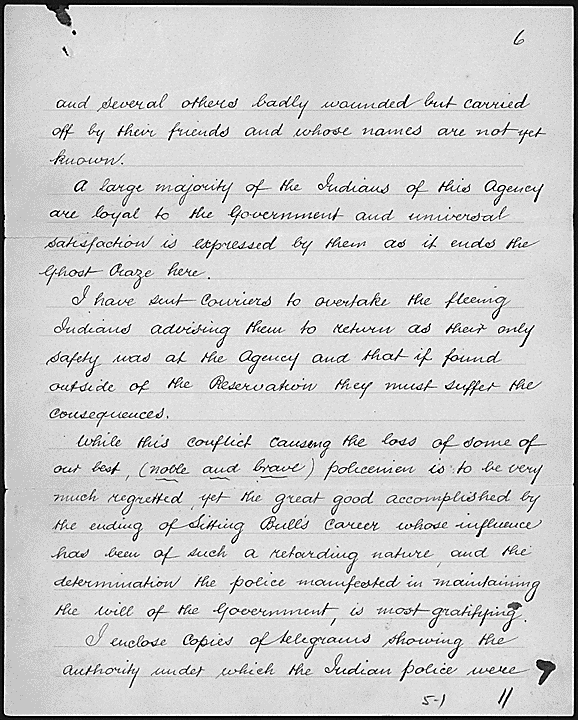 6
and several others badly wounded but carried
off by their friends and whose names are not yet
known.
A large majority of the Indians of this Agency
are loyal to the Government and universal
satisfaction is expressed by them as it ends the
Ghost Craze here.
I have sent Couriers to overtake the fleeing
Indians advising them to return as their only
safety was at the Agency and that if found
outside of the Reservation they must suffer the
consequences.
While this conflict causing the loss of some of
our best, (noble and brave) policemen is to be very
much regretted, yet the great good accomplished by
the ending of Sitting Bull's career whose influence
has been of such a retarding nature, and the
determination the police manifested in maintaining
the will of the Government, is most gratifying.
I enclose Copies of telegrams showing the
authority under which the Indian police were
5-1 11